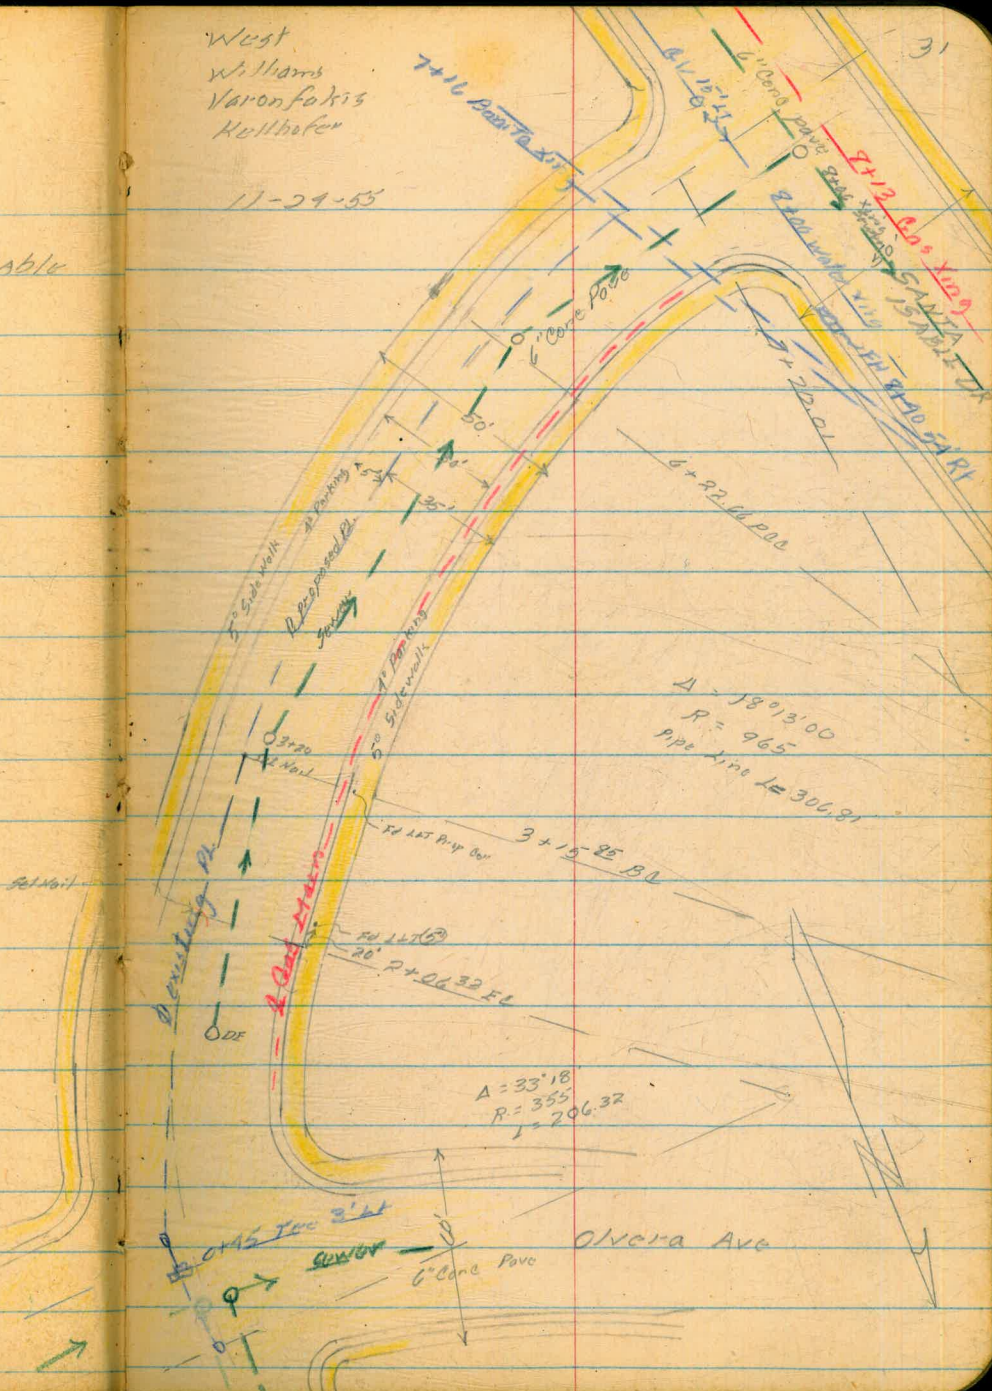 31
West
Williams
Varonfakis
Kellhofer
11-29-55
7+16 Bonita Xing
6" Conc pave
7+13 Gas Xing
8+00 water xing
SANTA
ISABEL DR
FH 8+40 54' Rt
6" Conc Pave
7+20.01
50'
35'
5'
6+22.66 PCC
4' Parking
5' Side Walk
℄ Proposed PL
Sewer
4' Parking
5' Sidewalk
Δ = 18°13'00
R = 965
Pipe Line L= 306.81
3+20
Nail
Fd L&T Prop Cor
3+15.85 BC
Set Nail
℄ existing PL
℄ Gas Main
Fd L&T (5')
20'
2+06.32 EC
DE
Δ = 33°18'
R. = 355
L = 206.32
0+45 Tee 3' Lt
sewer
60'
6" Conc Pave
Olvera Ave